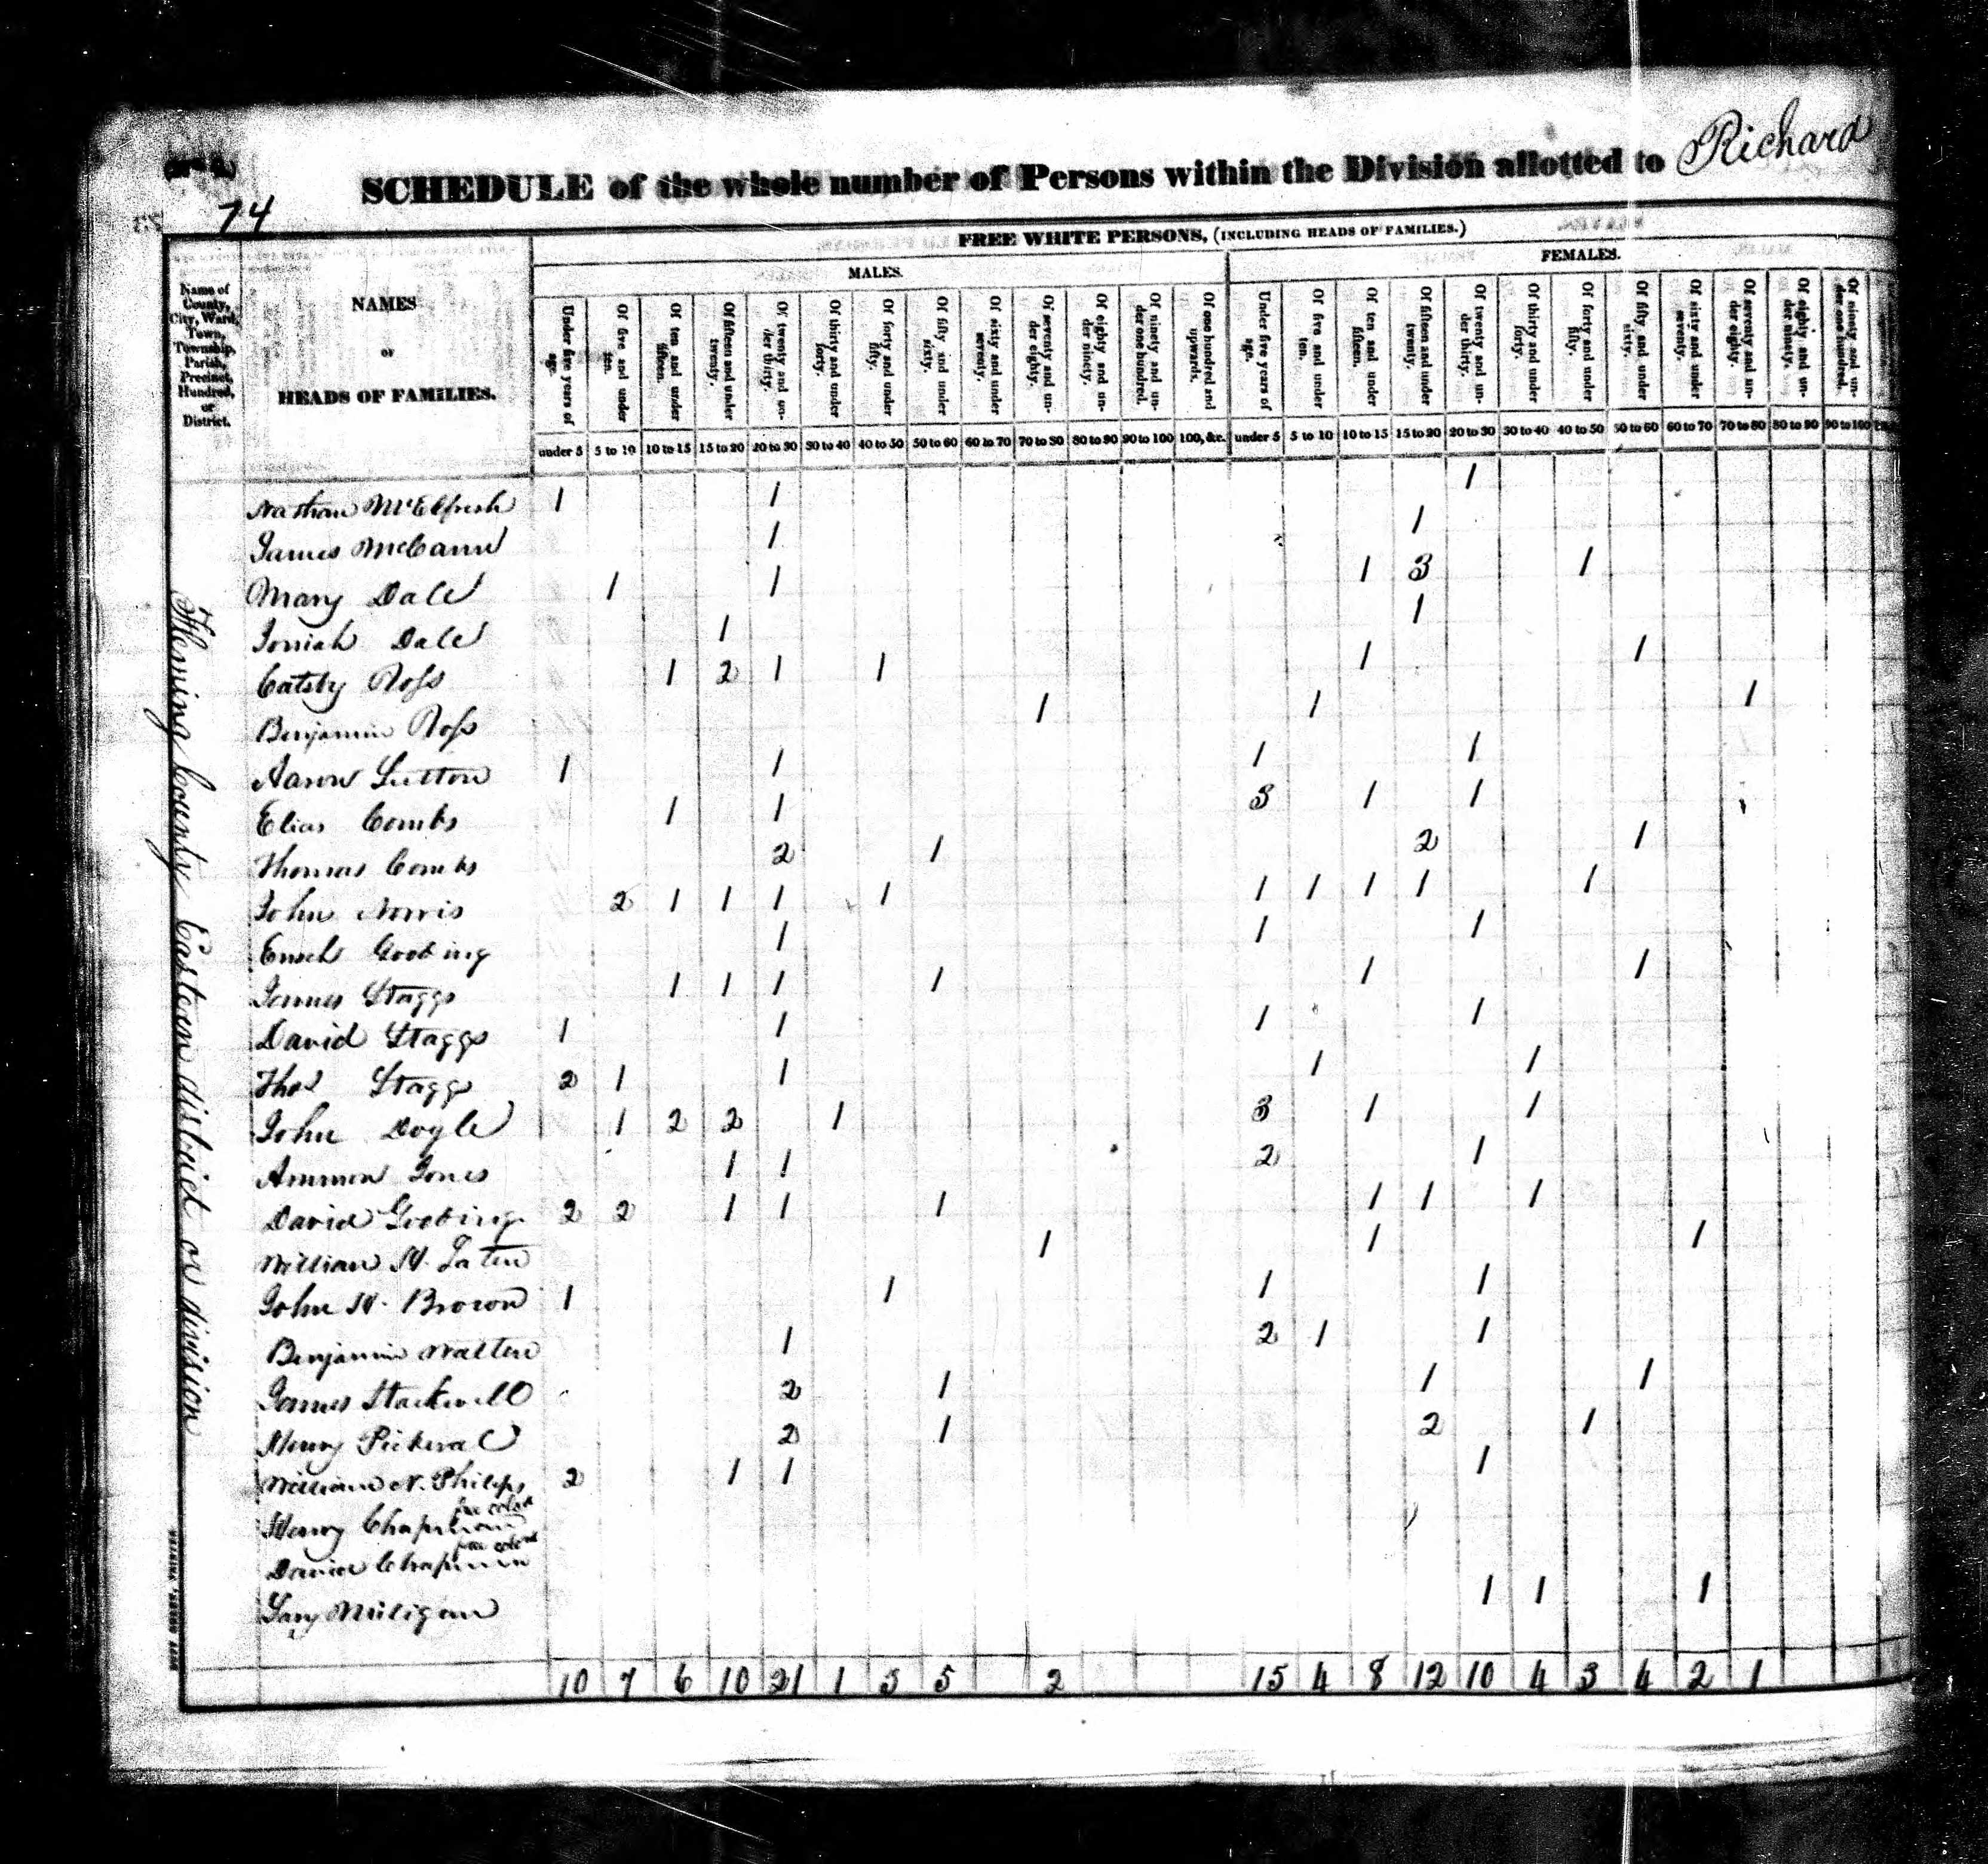 (No. 2.)
SCHEDULE of the whole number of Persons within the Division allotted to Richard
74
FREE WHITE PERSONS, (INCLUDING HEADS OF FAMILIES.)
MALES. FEMALES.
Name of County, City, Ward, Town, Township, Parish, Precinct, Hundred, or District.
NAMES
OF
HEADS OF FAMILIES.
Under five years of age. Of five and under ten. Of ten and under fifteen. Of fifteen and under twenty. Of twenty and under thirty. Of thirty and under forty. Of forty and under fifty. Of fifty and under sixty. Of sixty and under seventy. Of seventy and under eighty. Of eighty and under ninety. Of ninety and under one hundred. Of one hundred and upwards. Under five years of age. Of five and under ten. Of ten and under fifteen. Of fifteen and under twenty. Of twenty and under thirty. Of thirty and under forty. Of forty and under fifty. Of fifty and under sixty. Of sixty and under seventy. Of seventy and under eighty. Of eighty and under ninety. Of ninety and under one hundred.
under 5 5 to 10 10 to 15 15 to 20 20 to 30 30 to 40 40 to 50 50 to 60 60 to 70 70 to 80 80 to 90 90 to 100 100, &c. under 5 5 to 10 10 to 15 15 to 20 20 to 30 30 to 40 40 to 50 50 to 60 60 to 70 70 to 80 80 to 90 90 to 100
Fleming County Eastern district or division
Nathan McElfresh 1 1 1
James McCann 1 1
Mary Dale 1 1 1 3 1
Josiah Dale 1 1
Catsby Ross 1 2 1 1 1 1
Benjamin Ross 1 1 1
Aaron Sutton 1 1 1 1
Elias Combs 1 1 3 1 1
Thomas Combs 2 1 2 1
John Norris 2 1 1 1 1 1 1 1 1 1
Enoch Gooding 1 1 1
James Staggs 1 1 1 1 1 1
David Staggs 1 1 1 1
Thos Staggs 2 1 1 1 1
John Doyle 1 2 2 1 3 1 1
Ammon Jones 1 1 2 1
David Gooding 2 2 1 1 1 1 1 1
William H. 1 1 1
John H. Brown 1 1 1 1
Benjamin Walten 1 2 1 1
James Stockwell 2 1 1 1
Henry Pickeral 2 1 2 1
William N. Philips 2 1 1 1
Henry Chapman free colod
David Chapman free colod
Miligan 1 1 1
10 7 6 10 21 1 3 5 2 15 4 8 12 10 4 3 4 2 1